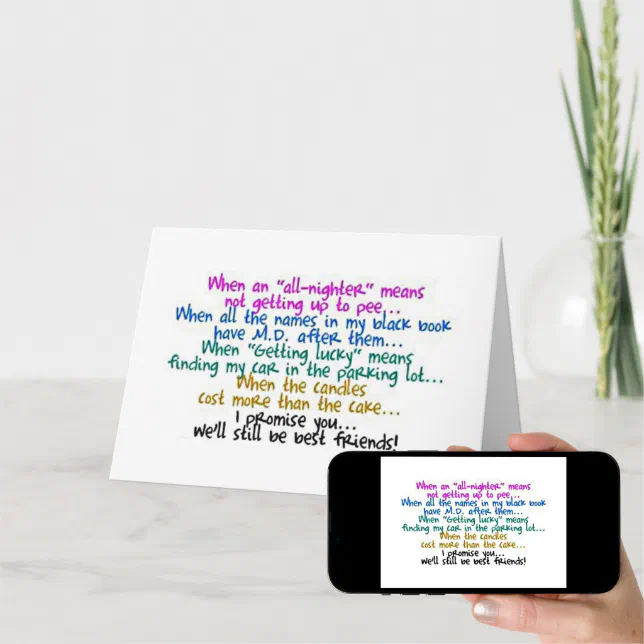 When an "all-nighter" means
not getting up to pee...
When all the names in my black book
have M.D. after them...
When "Getting lucky" means
finding my car in the parking lot...
When the candles
cost more than the cake...
I promise you...
we'll still be best friends!
When an "all-nighter" means
not getting up to pee...
When all the names in my black book
have M.D. after them...
When "Getting lucky" means
finding my car in the parking lot...
When the candles
cost more than the cake...
I promise you...
we'll still be best friends!